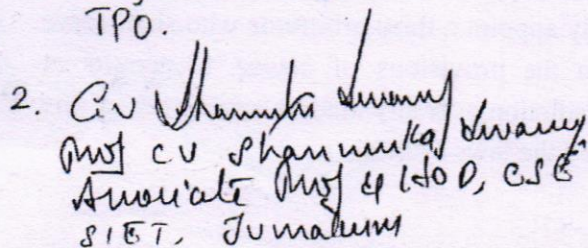 TPO.
2. C V Shanmuka Swamy
Prof CV Shanmuka Swamy
Associate Prof & HOD, CSE
SIET, Tumakuru